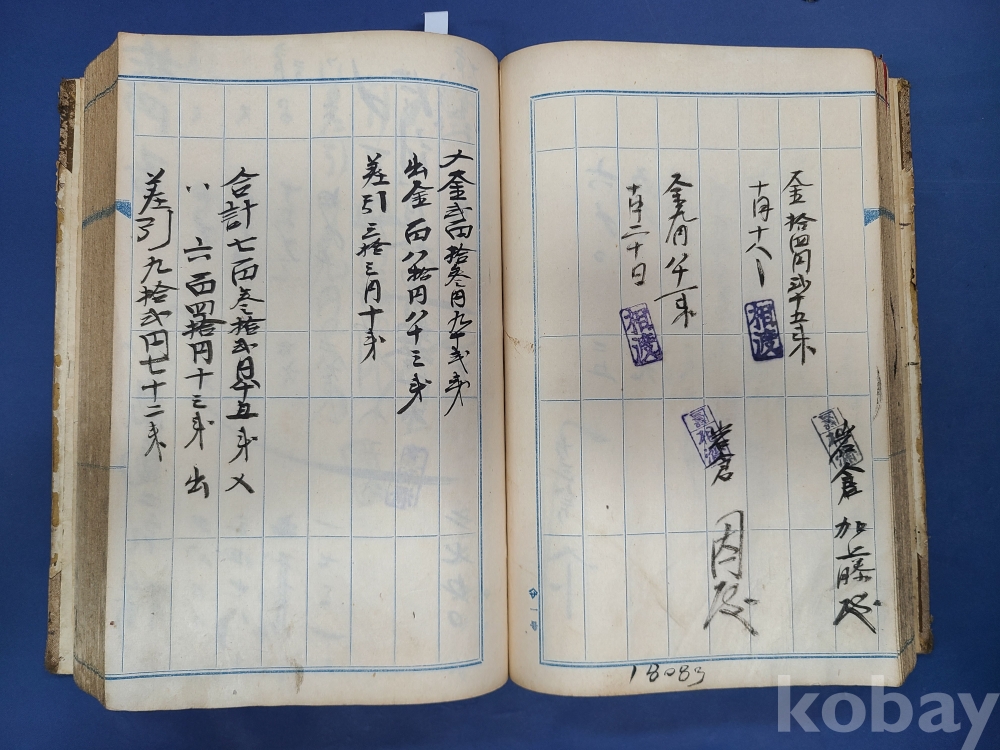 金拾四円弐十五銭
十月十八日
相渡
加藤殿
金九円八十一銭
十月二十日
相渡
殿
18083
入金弐百拾参円九十弐銭
出金百八拾円八十三銭
差引三拾三円十銭
合計七百参拾弐円八十五銭 入
〃 六百四拾円十三銭 出
差引九拾弐円七十二銭
kobay